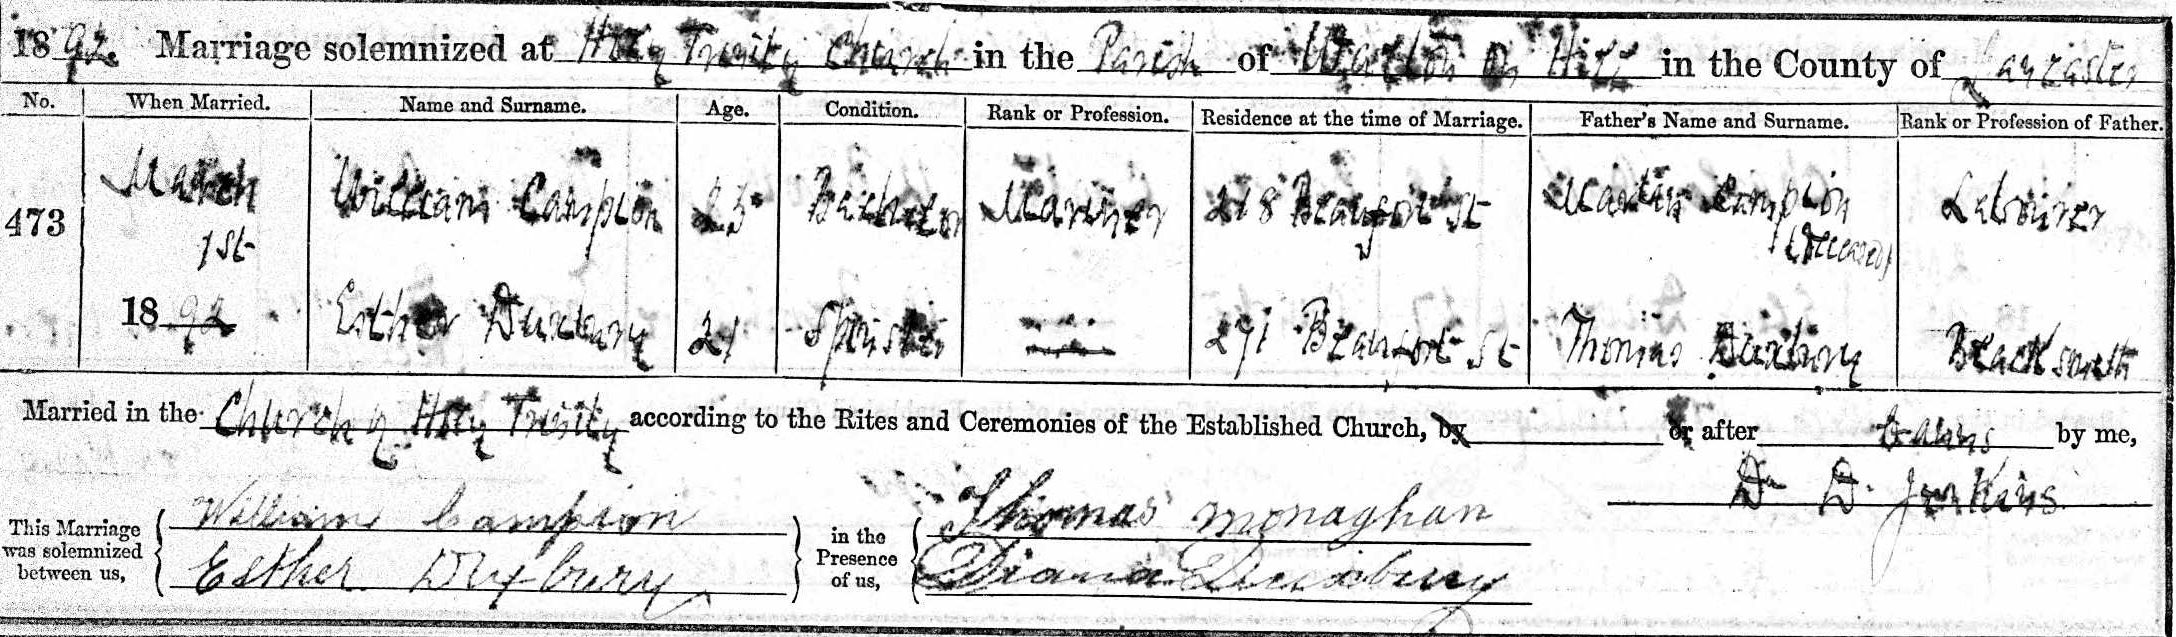 1892. Marriage solemnized at Holy Trinity Church in the Parish of Walton on Hill in the County of Lancaster
No. When Married. Name and Surname. Age. Condition. Rank or Profession. Residence at the time of Marriage. Father's Name and Surname. Rank or Profession of Father.
473 March 1st 1892 William Campion 23 Bachelor Mariner 218 Beaufort St Martin Campion (Deceased) Labourer
Esther Duxbury 21 Spinster 271 Beaufort St Thomas Duxbury Blacksmith
Married in the Church of Holy Trinity according to the Rites and Ceremonies of the Established Church, by or after banns by me,
D. D. Jenkins
This Marriage was solemnized between us, William Campion Esther Duxbury in the Presence of us, Thomas Monaghan Diana Duxbury